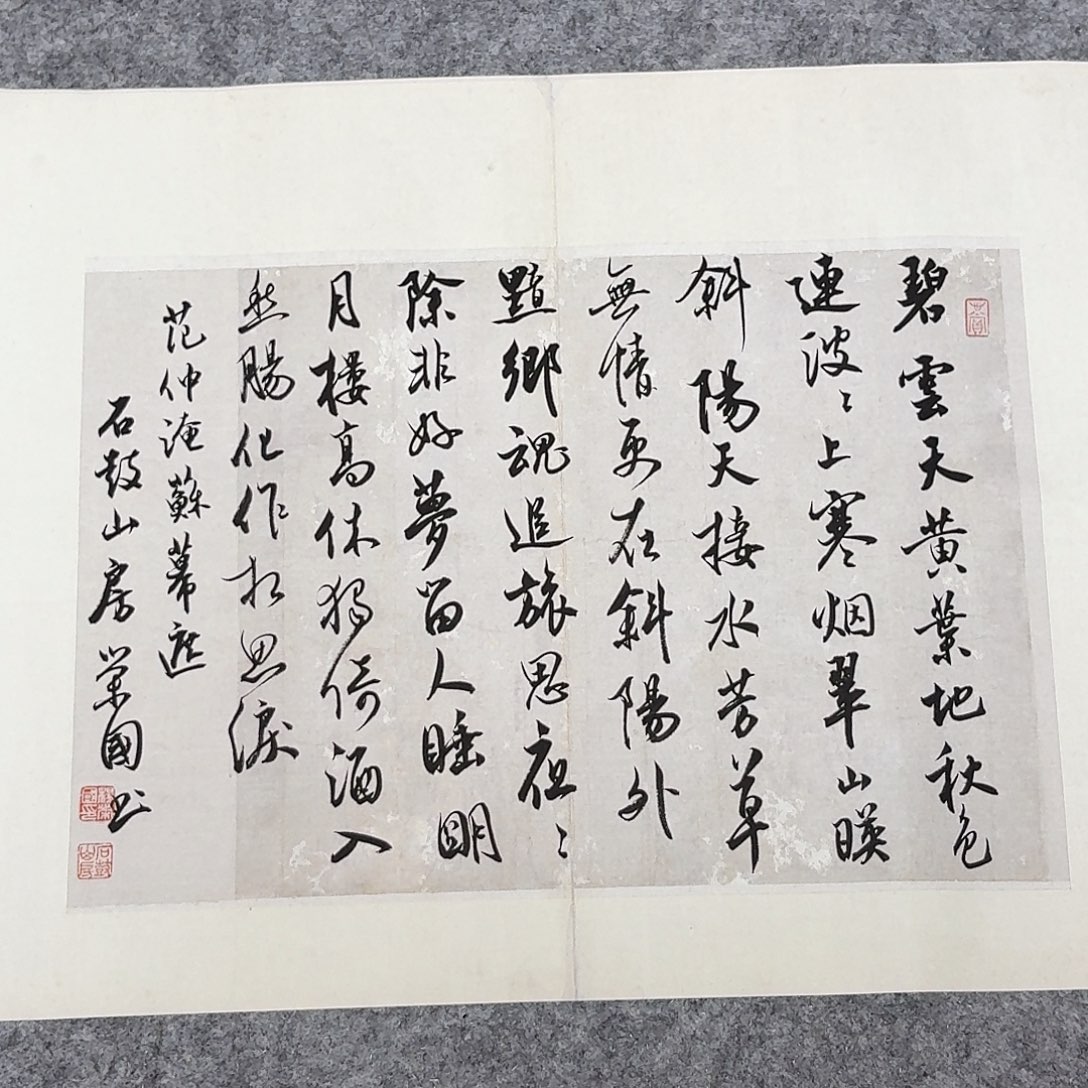 碧雲天黄葉地秋色
連波〻上寒烟翠山暎
斜陽天接水芳草
無情更在斜陽外
黯鄉魂追旅思夜〻
除非好夢留人睡明
月樓高休獨倚酒入
愁腸化作相思淚
范仲淹蘇幕遮
石鼓山房榮國书
石鼓山房